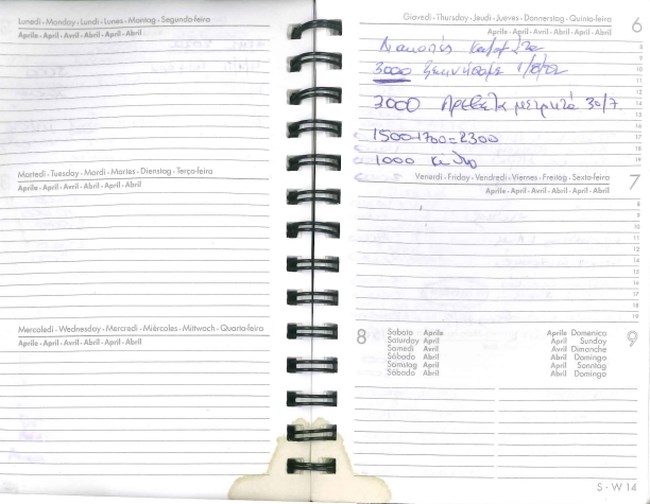 Lunedì - Monday - Lundi - Lunes - Montag - Segunda-feira
Aprile - April - Avril - Abril - April - Abril
Martedì - Tuesday - Mardi - Martes - Dienstag - Terça-feira
Aprile - April - Avril - Abril - April - Abril
Mercoledì - Wednesday - Mercredi - Miércoles - Mittwoch - Quarta-feira
Aprile - April - Avril - Abril - April - Abril
Giovedì - Thursday - Jeudi - Jueves - Donnerstag - Quinta-feira 6
Aprile - April - Avril - Abril - April - Abril
Διακοπές
3000 ξεκινήσαμε 1/8/02
2000 μετρητά 30/7
1500+700=2300
1000
Venerdì - Friday - Vendredi - Viernes - Freitag - Sexta-feira 7
Aprile - April - Avril - Abril - April - Abril
8 Sabato Aprile
Saturday April
Samedi Avril
Sábado Abril
Samstag April
Sábado Abril
Aprile Domenica 9
April Sunday
Avril Dimanche
Abril Domingo
April Sonntag
Abril Domingo
S - W 14